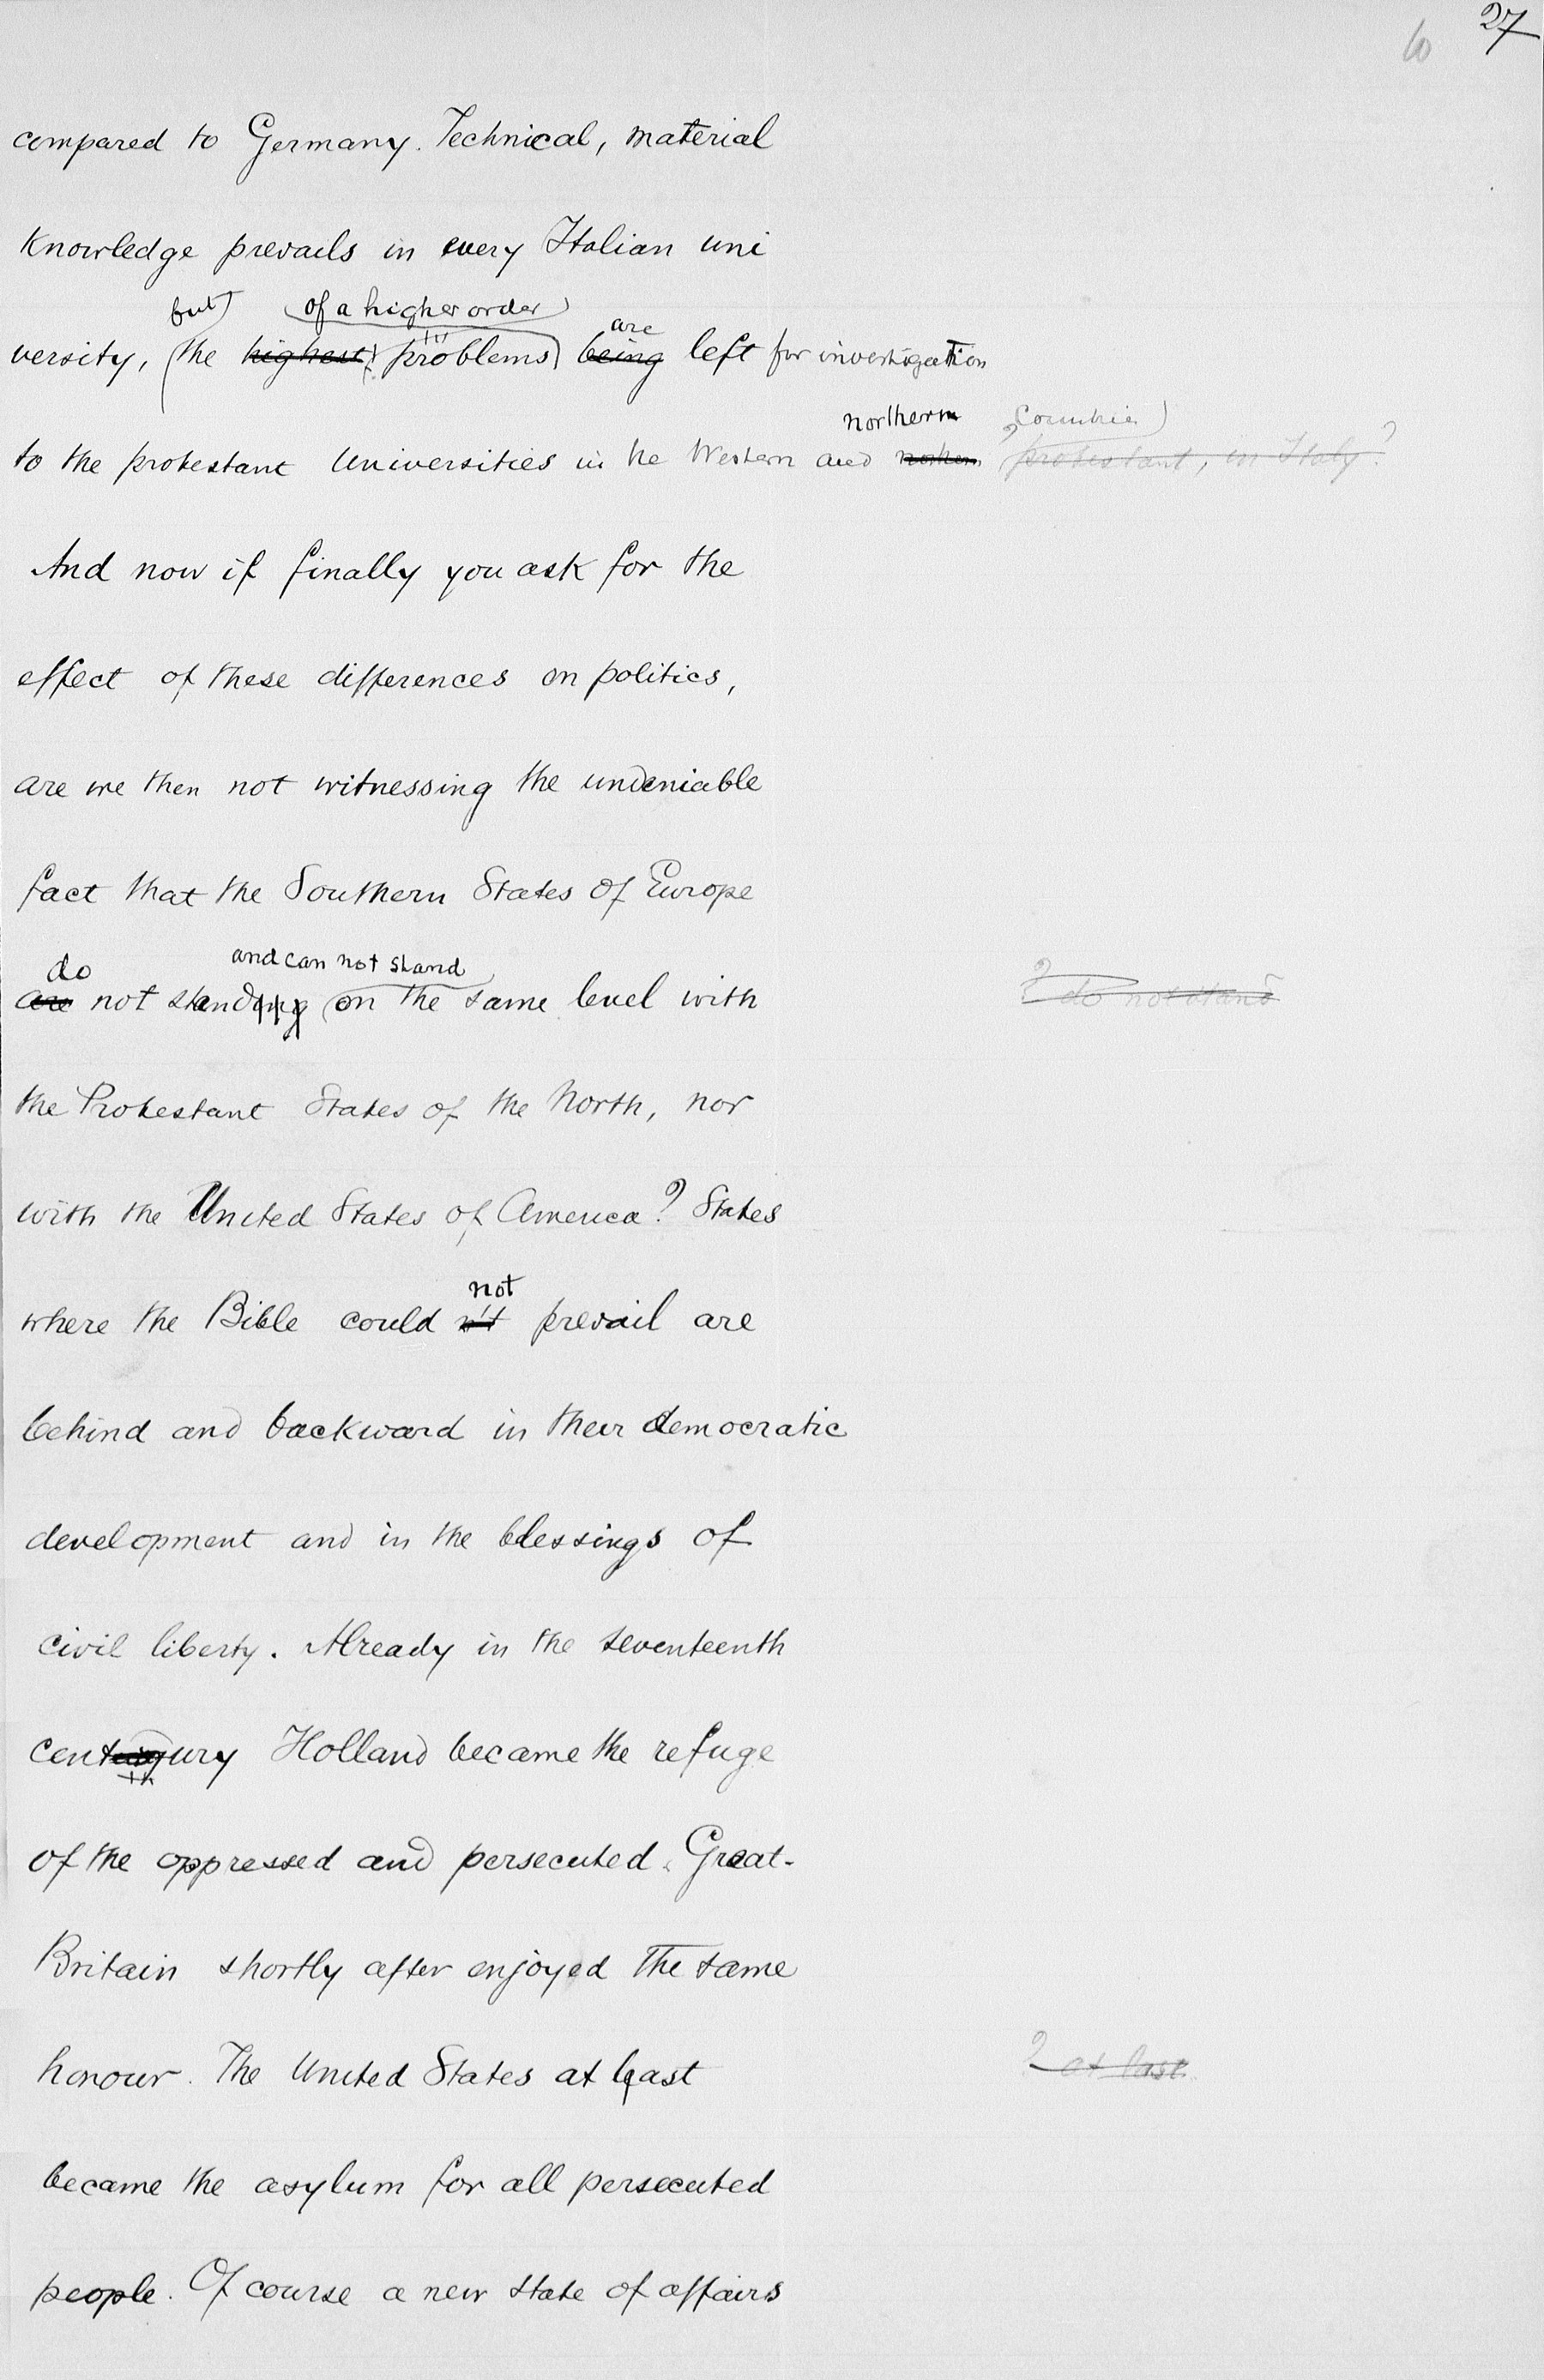 27
compared to Germany. Technical, material
Knowledge prevails in every Italian uni
but of a higher order are
versity, the highest problems being left for investigation
northern Countries
to the protestant Universities in the Western and northern protestant, in Italy?
And now if finally you ask for the
effect of these differences on politics,
are we then not witnessing the undeniable
fact that the Southern States of Europe
do and can not stand
are not standing on the same level with ? do not stand
the Protestant States of the North, nor
with the United States of America? States
not
where the Bible could n't prevail are
behind and backward in their democratic
development and in the blessings of
civil liberty. Already in the seventeenth
century Holland became the refuge
of the oppressed and persecuted. Great-
Britain shortly after enjoyed the same
honour. The United States at last ? at last
became the asylum for all persecuted
people. Of course a new state of affairs